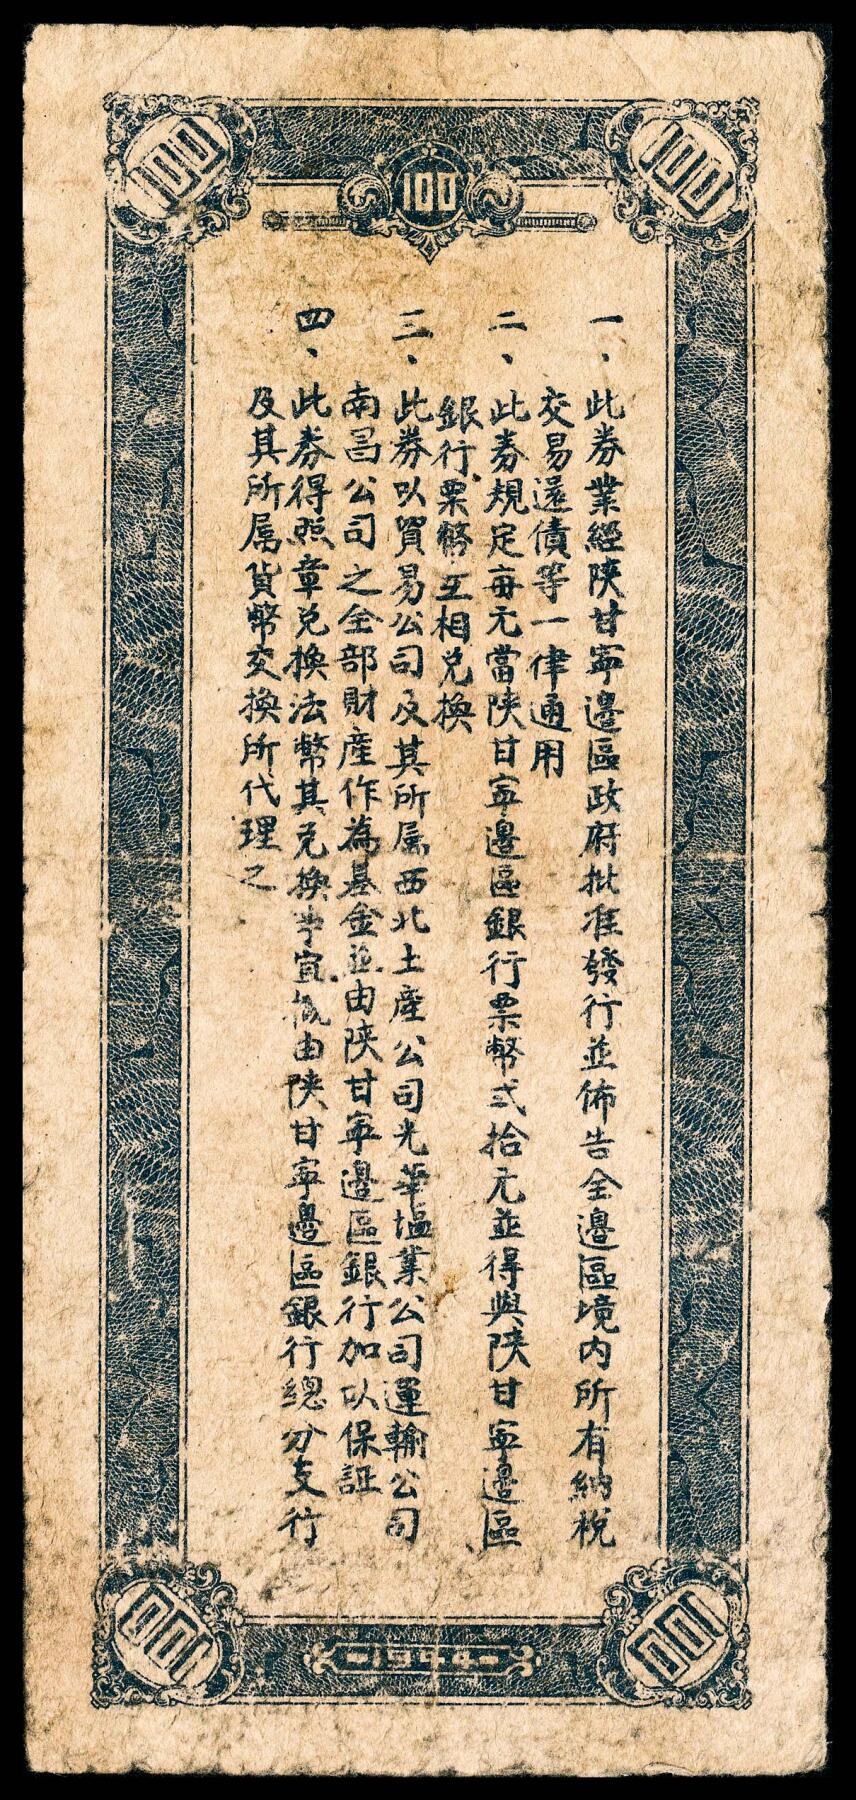 100
100
100
一、此券業經陝甘寧邊區政府批准發行並佈告全邊區境内所有納稅
交易還債等一律通用
二、此券規定每元當陝甘寧邊區銀行票幣弍拾元並得與陝甘寧邊區
銀行票幣互相兌換
三、此券以貿易公司及其所属西北土產公司光華塩業公司運輸公司
南昌公司之全部財產作為基金並由陝甘寧邊區銀行加以保証
四、此券得照章兌換法幣其兌換事宜概由陝甘寧邊區銀行總分支行
及其所属貨幣交換所代理之
100
-1944-
100